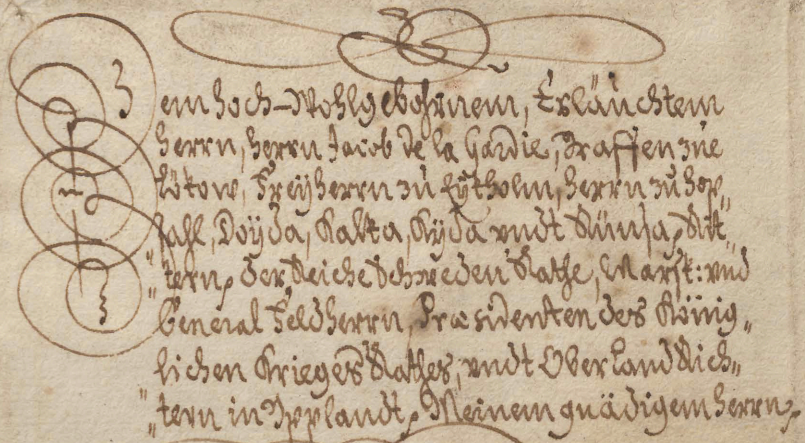 Dem Hoch-Wohlgebohrnem, Erläuchtem
Herrn, Herrn Jacob De la Gardie, Graffen zue
Lökow, Freÿherrn zu Eÿkholm, Herrn zu Hap„
sahl, Doÿda, Kalka, Kÿda vndt Rünsa, Rit„
„tern, der Reiche Schweden Rathe, Marsk: vnd
General Feldherrn, Præsidenten des König„
lichen Krieges Rathes, vndt Ober Land Rich„
„tern in Vpplandt, Meinem gnädigem Herrn,